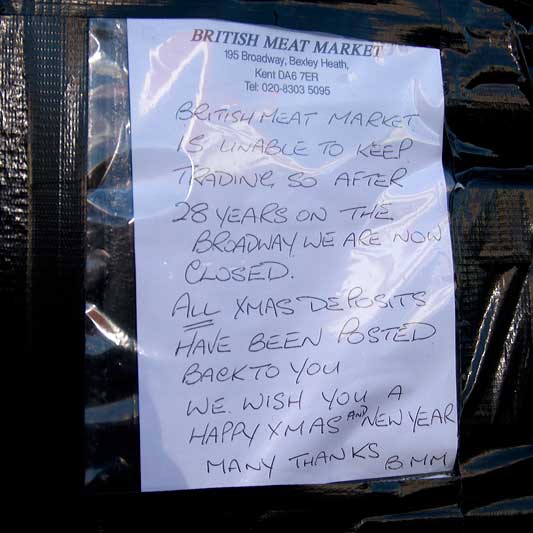 BRITISH MEAT MARKET
195 Broadway, Bexley Heath,
Kent DA6 7ER
Tel: 020-8303 5095
BRITISH MEAT MARKET
IS UNABLE TO KEEP
TRADING SO AFTER
28 YEARS ON THE
BROADWAY WE ARE NOW
CLOSED.
ALL XMAS DEPOSITS
HAVE BEEN POSTED
BACK TO YOU
WE. WISH YOU A
HAPPY XMAS AND NEW YEAR
MANY THANKS BMM